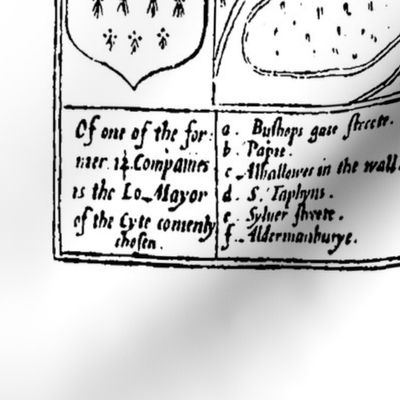 Of one of the for:
mer. 12. Companies
is the Lo_ Mayor
of the Cyte comenly
chosen.
a. Bushops gate streete.
b. Papie.
c. Alhallowes in the wall.
d. S. Taphyns.
e. Sylver streete.
f. Aldermanburye.